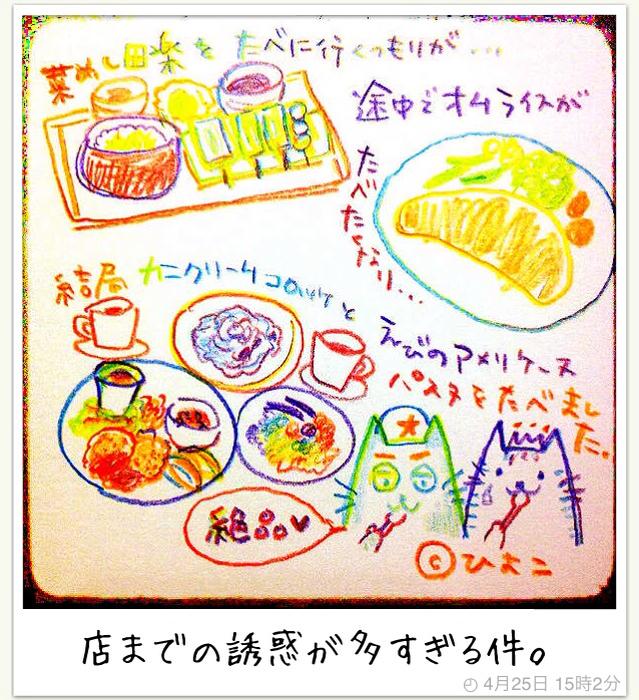 菜めし田楽を たべに行くつもりが…
途中でオムライスが
たべたくなり…
結局 カニクリームコロッケと
えびのアメリケーヌ
パスタをたべました。
絶品♥
©ひよこ
店までの誘惑が多すぎる件。
4月25日 15時2分